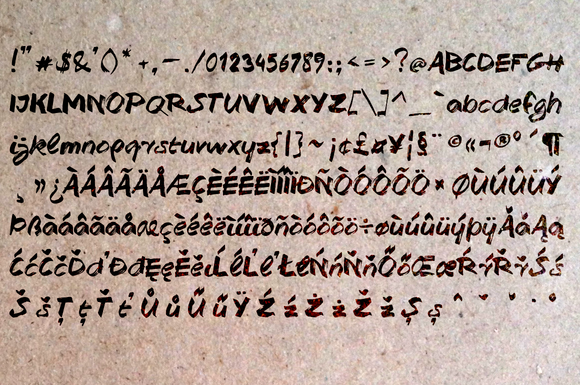 !"#$&'()*+,-./0123456789:;<=>?@ABCDEFGH
IJKLMNOPQRSTUVWXYZ[\]^_`abcdefgh
ijklmnopqrstuvwxyz{|}~¡¢£¤¥¦§¨©«¬®°´¶
¸»¿ÀÁÂÃÄÅÆÇÈÉÊËÌÍÎÏÐÑÒÓÔÕÖ×ØÙÚÛÜÝ
Þßàáâãäåæçèéêëìíîïðñòóôõö÷øùúûüýþÿĂăĄą
ĆćČčĎďĐđĘęĚěıĹĺĽľŁłŃńŇňŐőŒœŔŕŘřŚś
ŠšŢţŤťŮůŰűŸŹźŻżŽžȘșˆˇ˘˙˚